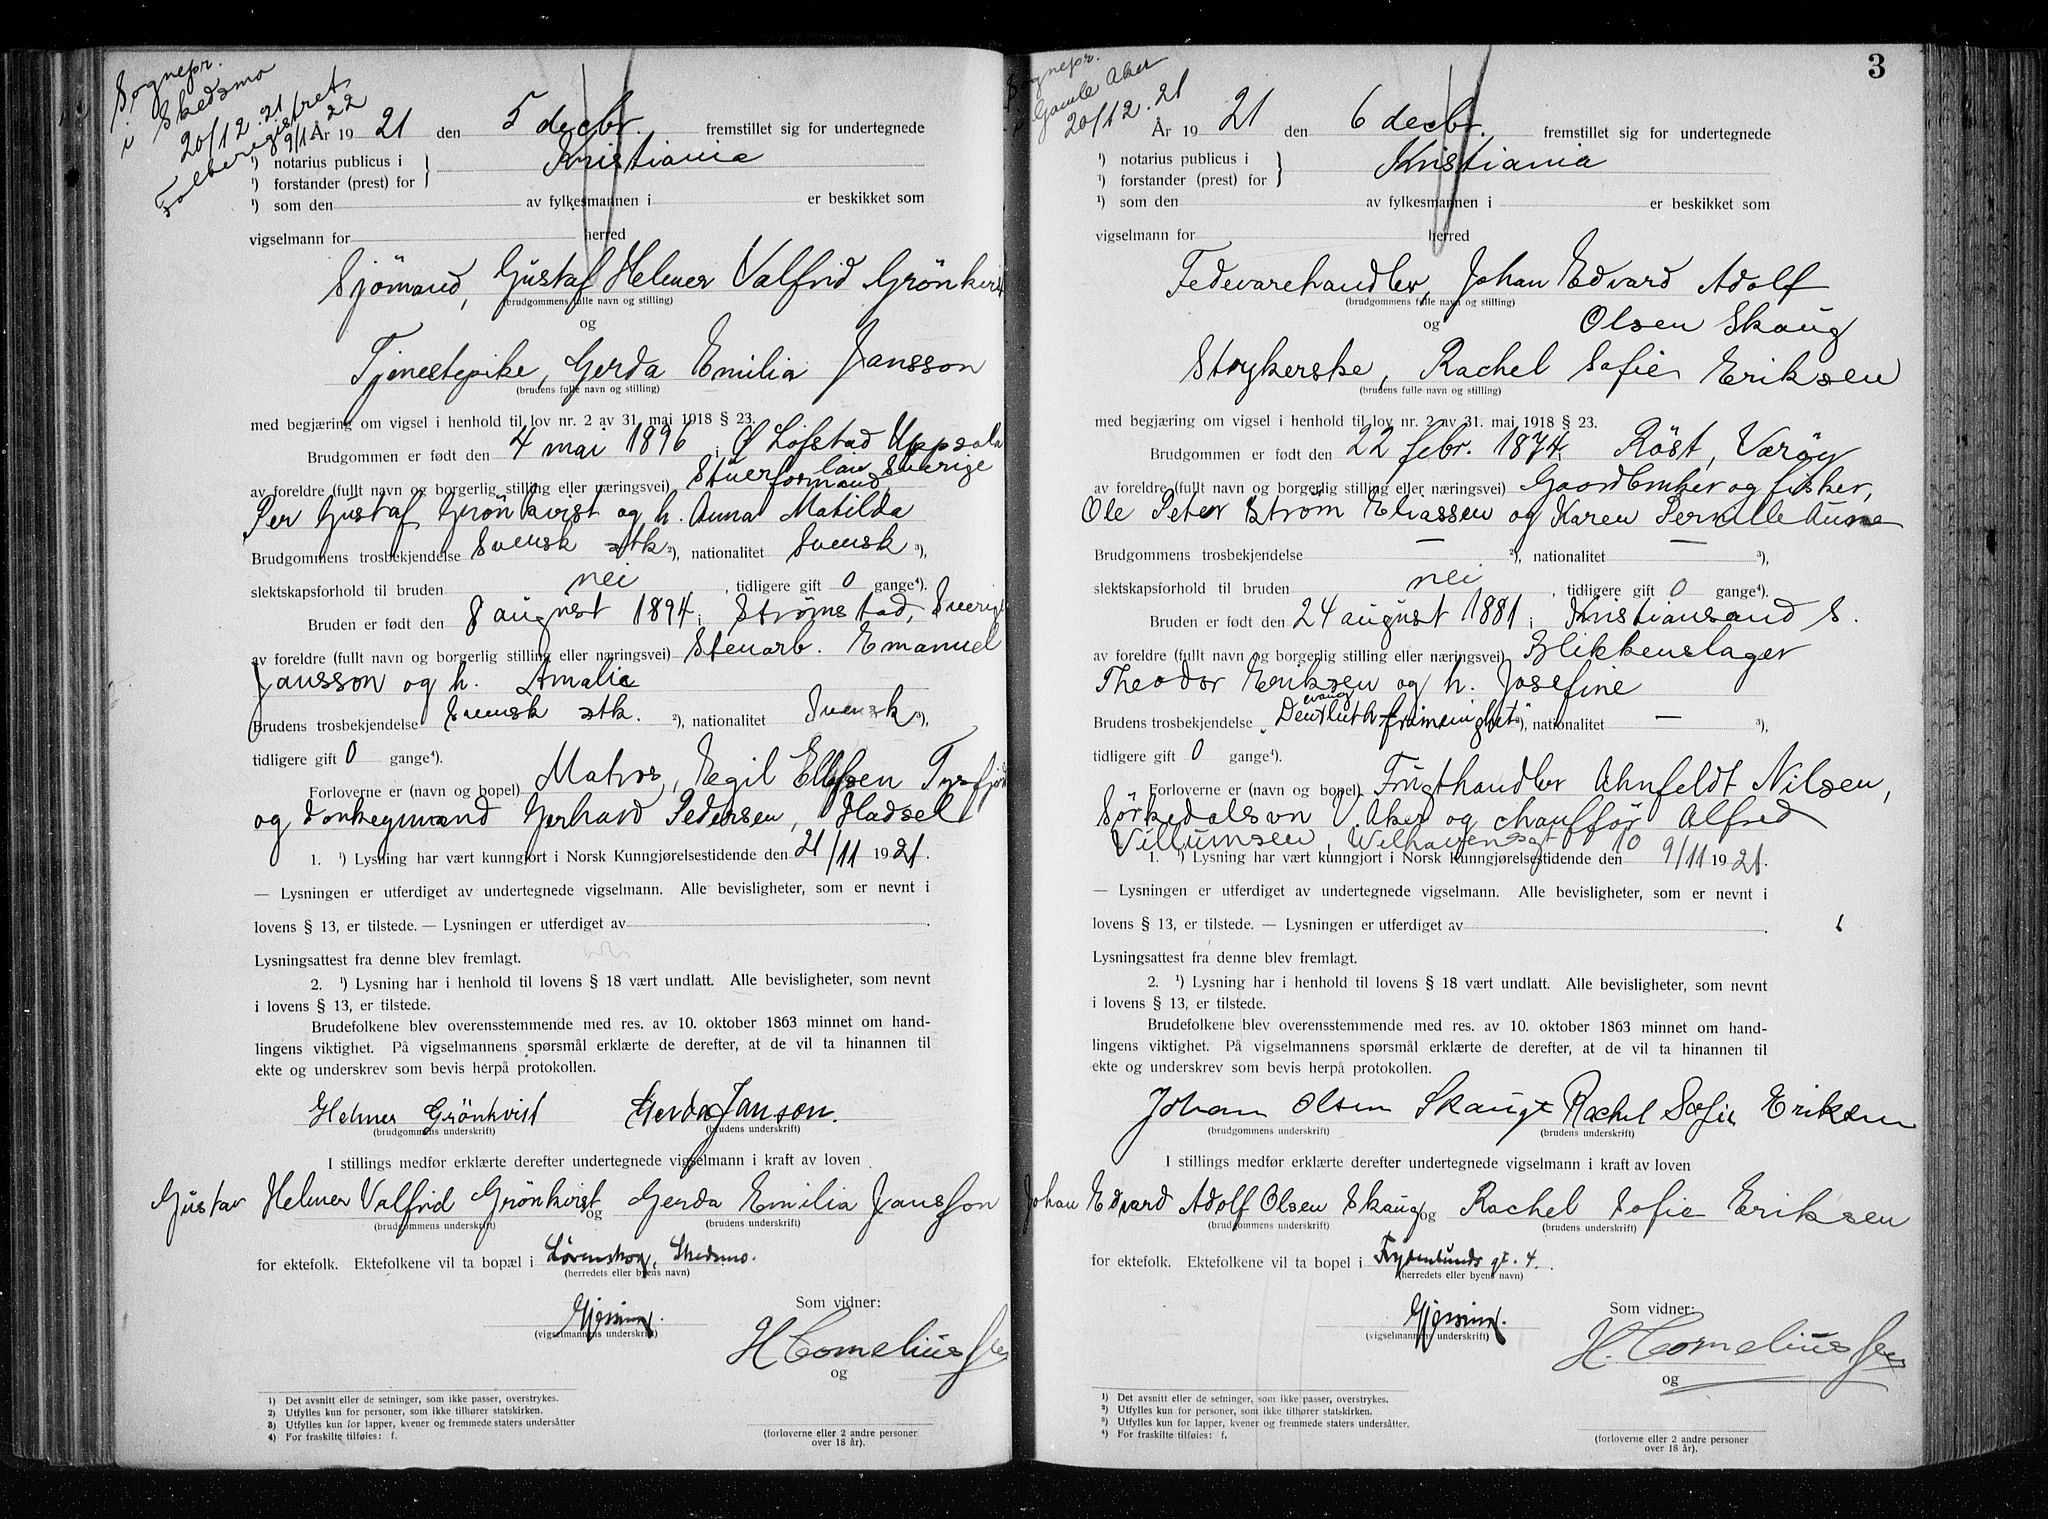 Sognepr.
i Skedsmo
20/12.21
Folkeregistret
9/1 22
År 1921 den 5 decbr. fremstillet sig for undertegnede
¹) notarius publicus i Kristiania
¹) forstander (prest) for
¹) som den av fylkesmannen i er beskikket som
vigselmann for herred
Sjömand, Gustaf Helmer Valfrid Grönkvist
(brudgommens fulle navn og stilling)
og
Tjenestepike, Gerda Emilia Jansson
(brudens fulle navn og stilling)
med begjæring om vigsel i henhold til lov nr. 2 av 31. mai 1918 § 23.
Brudgommen er født den 4 mai 1896 i Ö Löfstad Uppsala
län Sverige
av foreldre (fullt navn og borgerlig stilling eller næringsvei) Stuerformand,
Per Gustaf Grönkvist og h. Anna Matilda
Brudgommens trosbekjendelse Svensk stk ²), nationalitet Svensk ³),
slektskapsforhold til bruden nei, tidligere gift 0 gange⁴).
Bruden er født den 8 august 1894 i Strömstad, Sverige
av foreldre (fullt navn og borgerlig stilling eller næringsvei) Stenarb. Emanuel
Jansson og h. Amalia
Brudens trosbekjendelse Svensk stk. ²), nationalitet Svensk ³),
tidligere gift 0 gange⁴).
Forloverne er (navn og bopel) Matros, Egil Ellefsen Tysfjord
og donkeymand Gerhard Pedersen, Hadsel
1. ¹) Lysning har vært kunngjort i Norsk Kunngjørelsestidende den 21/11 1921.
— Lysningen er utferdiget av undertegnede vigselmann. Alle bevisligheter, som er nevnt i
lovens § 13, er tilstede. — Lysningen er utferdiget av .
Lysningsattest fra denne blev fremlagt.
2. ¹) Lysning har i henhold til lovens § 18 vært undlatt. Alle bevisligheter, som nevnt
i lovens § 13, er tilstede.
Brudefolkene blev overensstemmende med res. av 10. oktober 1863 minnet om hand-
lingens viktighet. På vigselmannens spørsmål erklærte de derefter, at de vil ta hinannen til
ekte og underskrev som bevis herpå protokollen.
Helmer Grönkvist Gerda Janson.
(brudgommens underskrift) (brudens underskrift)
I stillings medfør erklærte derefter undertegnede vigselmann i kraft av loven
Gustav Helmer Valfrid Grönkvist og Gerda Emilia Jansson
(brudgommens underskrift) (brudens underskrift)
for ektefolk. Ektefolkene vil ta bopæl i Lørenskog, Skedsmo.
(herredets eller byens navn)
Som vidner:
Gjessing.
(vigselmannens underskrift)
H Cornelius
og
¹) Det avsnitt eller de setninger, som ikke passer, overstrykes.
²) Utfylles kun for personer, som ikke tilhører statskirken.
³) Utfylles kun for lapper, kvener og fremmede staters undersåtter
⁴) For fraskilte tilføies: f.
(forloverne eller 2 andre personer
over 18 år).
3
Sognepr.
i Gamle Aker
20/12.21
År 1921 den 6 decbr. fremstillet sig for undertegnede
¹) notarius publicus i Kristiania
¹) forstander (prest) for
¹) som den av fylkesmannen i er beskikket som
vigselmann for herred
Fedevarehandler, Johan Edvard Adolf
(brudgommens fulle navn og stilling)
og Olsen Skaug
Strykerske, Rachel Sofie Eriksen
(brudens fulle navn og stilling)
med begjæring om vigsel i henhold til lov nr. 2 av 31. mai 1918 § 23.
Brudgommen er født den 22 febr. 1874 i Röst, Væröy
av foreldre (fullt navn og borgerlig stilling eller næringsvei) Gaardbruker og fisker,
Ole Peter Ström Eliassen og Karen Pernille Aune
Brudgommens trosbekjendelse — ²), nationalitet — ³),
slektskapsforhold til bruden nei, tidligere gift 0 gange⁴).
Bruden er født den 24 august 1881 i Kristiansand S.
av foreldre (fullt navn og borgerlig stilling eller næringsvei) Blikkenslager
Theodor Eriksen og h. Josefine
Brudens trosbekjendelse "Den evang luth frimenighet" ²), nationalitet — ³),
tidligere gift 0 gange⁴).
Forloverne er (navn og bopel) Frugthandler Ahnfeldt Nilsen,
Sörkedalsvn V. Aker og chaufför Alfred
Villumsen, Welhavensgt 10
1. ¹) Lysning har vært kunngjort i Norsk Kunngjørelsestidende den 9/11 1921.
— Lysningen er utferdiget av undertegnede vigselmann. Alle bevisligheter, som er nevnt i
lovens § 13, er tilstede. — Lysningen er utferdiget av .
Lysningsattest fra denne blev fremlagt.
2. ¹) Lysning har i henhold til lovens § 18 vært undlatt. Alle bevisligheter, som nevnt
i lovens § 13, er tilstede.
Brudefolkene blev overensstemmende med res. av 10. oktober 1863 minnet om hand-
lingens viktighet. På vigselmannens spørsmål erklærte de derefter, at de vil ta hinannen til
ekte og underskrev som bevis herpå protokollen.
Johan Olsen Skaug Rachel Sofie Eriksen
(brudgommens underskrift) (brudens underskrift)
I stillings medfør erklærte derefter undertegnede vigselmann i kraft av loven
Johan Edvard Adolf Olsen Skaug og Rachel Sofie Eriksen
(brudgommens underskrift) (brudens underskrift)
for ektefolk. Ektefolkene vil ta bopel i Frydenlunds gt. 4.
(herredets eller byens navn)
Som vidner:
Gjessing.
(vigselmannens underskrift)
H. Cornelius
og
¹) Det avsnitt eller de setninger, som ikke passer, overstrykes.
²) Utfylles kun for personer, som ikke tilhører statskirken.
³) Utfylles kun for lapper, kvener og fremmede staters undersåtter.
⁴) For fraskilte tilføies: f.
(forloverne eller 2 andre personer
over 18 år).